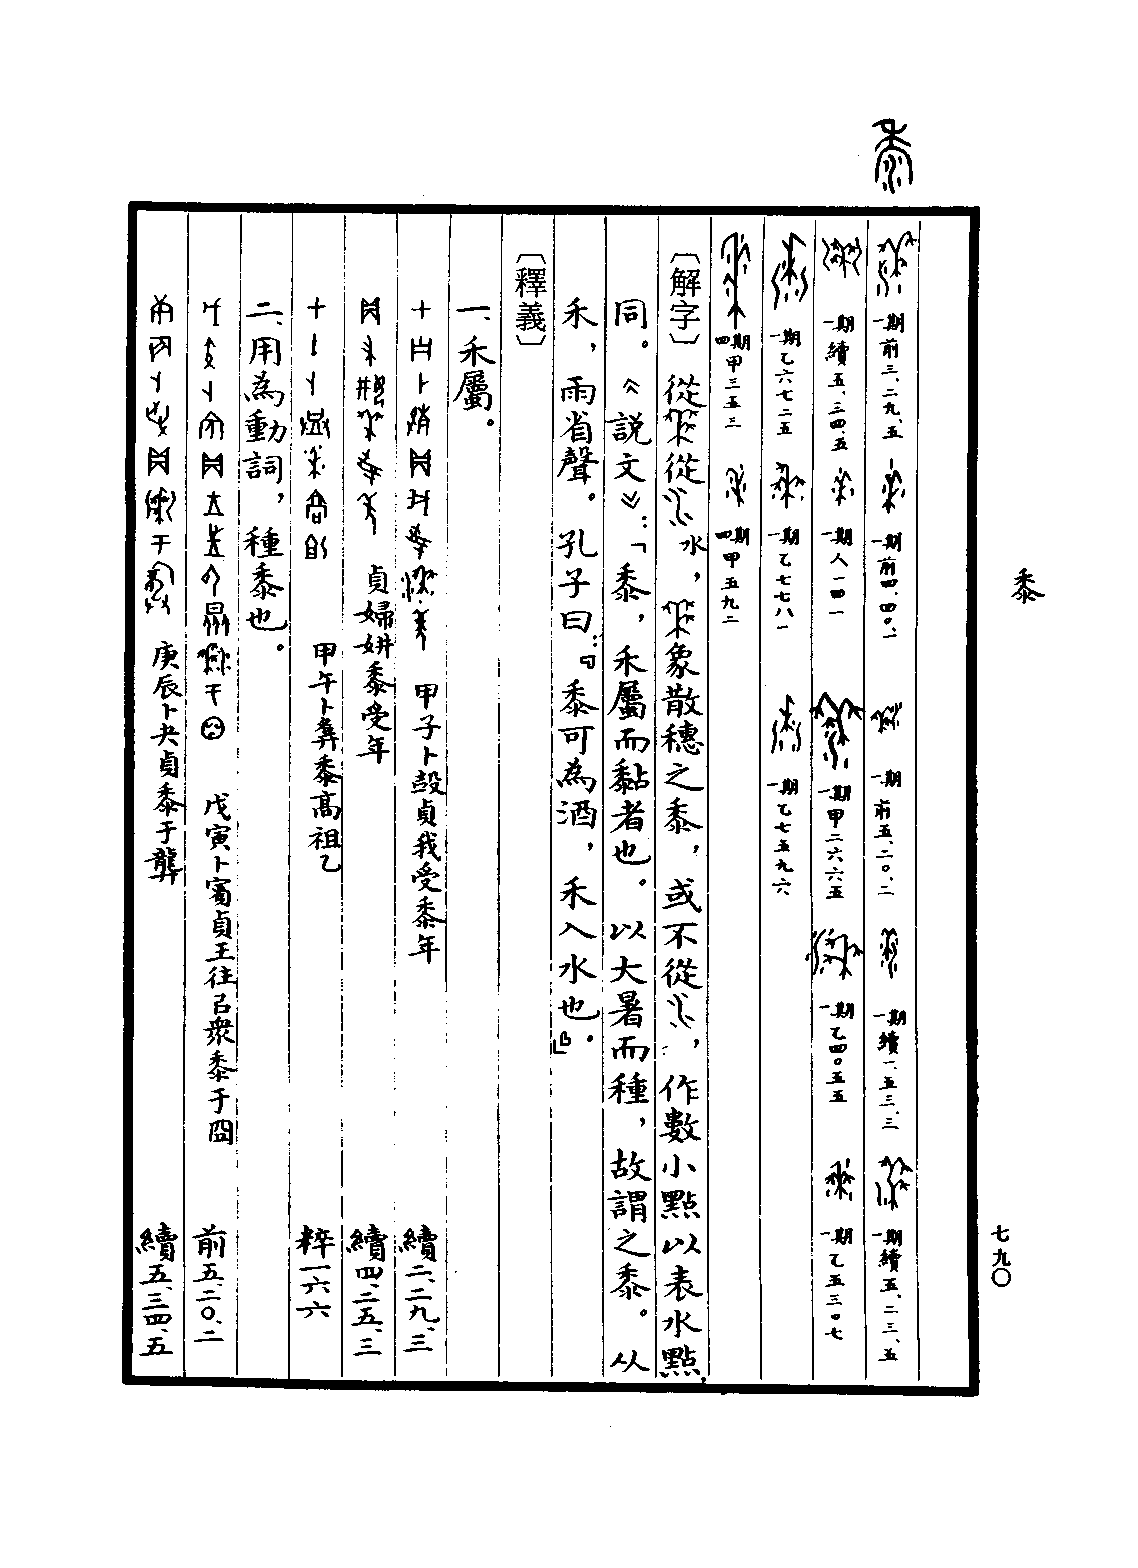 黍
七九〇
一期前三、二九、五 一期前四、四〇、一 一期前五、二〇、二 一期續一、五三、三 一期續五、二三、五
一期續五、三四、五 一期人一四一 一期甲二六六五 一期乙四〇五五 一期乙五三〇七
一期乙六七二五 一期乙七七八一 一期乙七五九六
四期甲三五三 四期甲五九二
〔解字〕從從水，象散穗之黍，或不從，作數小點以表水點
同。《說文》：「黍，禾屬而黏者也。以大暑而種，故謂之黍。从
禾，雨省聲。孔子曰：『黍可為酒，禾入水也。』」
〔釋義〕
一、禾屬。
甲子卜㱿貞我受黍年 續二、二九、三
貞婦妌黍受年 續四、二五、三
甲午卜𠦪黍高祖乙 粹一六六
二、用為動詞，種黍也。
戊寅卜賓貞王往㠯衆黍于囧 前五、二〇、二
庚辰卜夬貞黍于龔 續五、三四、五